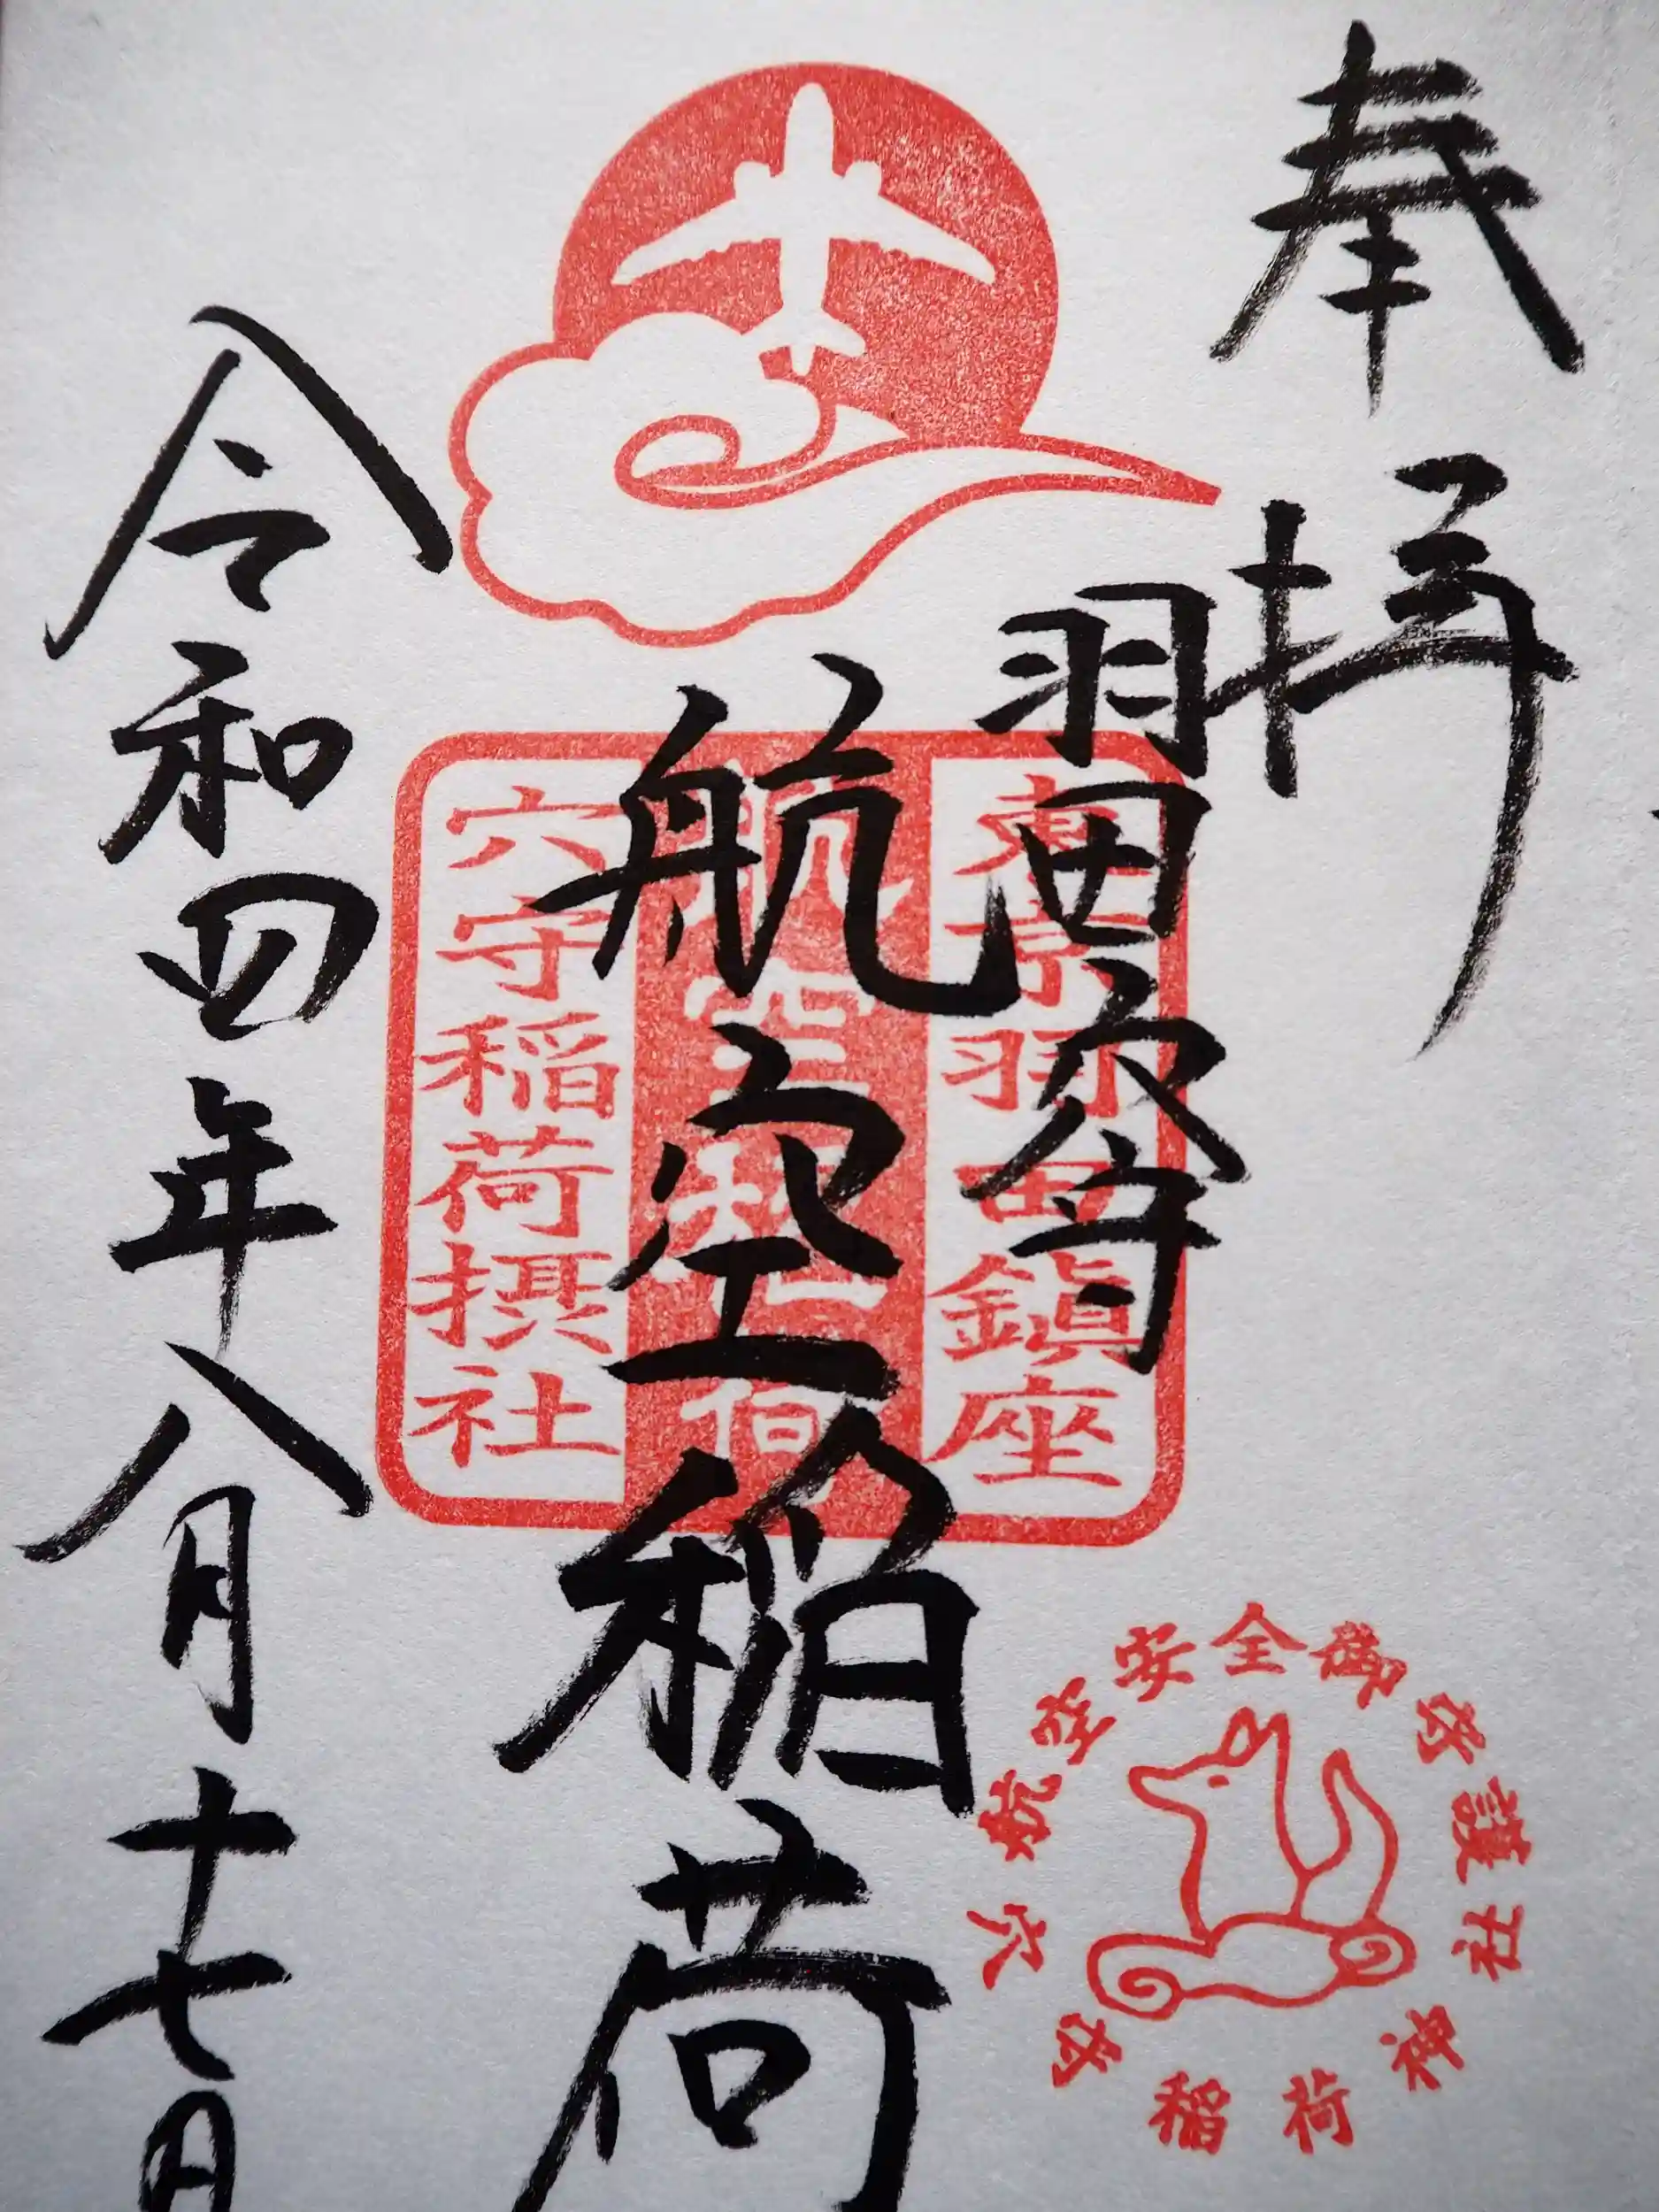 奉拝
羽田穴守
航空稲荷
令和四年八月十七日
東京羽田鎮座
航空稲荷
穴守稲荷摂社
航空安全御守護
穴守稲荷神社